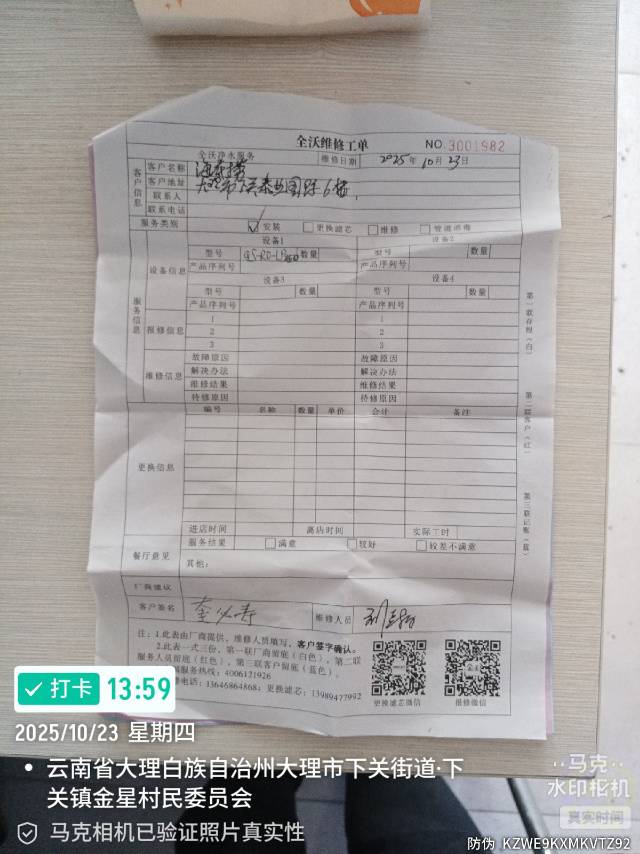 全沃维修工单
NO.3001982
全沃净水服务
维修日期 2025年10月23日
客户信息
客户名称
客户地址
联系人
联系电话
服务类别 安装 更换滤芯 维修 管道消毒
服务信息
设备信息
设备1 设备2
型号 数量 型号 数量
产品序列号 产品序列号
设备3 设备4
型号 数量 型号 数量
产品序列号 产品序列号
报修信息
1 1
2 2
3 3
维修信息
故障原因 故障原因
解决办法 解决办法
维修结果 维修结果
待修原因 待修原因
更换信息
编号 名称 数量 单价 合计 备注
进店时间 离店时间 实际工时
餐厅意见
服务结果 满意 较好 较差不满意
其他:
厂商建议
客户签名 维修人员
注:1.此表由厂商提供,维修人员填写,客户签字确认。
2.此表一式三份,第一联厂商留底(白色),第二联
服务人员留底(红色),第三联客户留底(蓝色)。
服务热线:4006121926
修电话:13646864868;更换滤芯:13989477992
更换滤芯微信 维修微信
第一联存根(白)
第二联客户(红)
第三联记账(蓝)
打卡 13:59
2025/10/23 星期四
云南省大理白族自治州大理市下关街道·下
关镇金星村民委员会
马克相机已验证照片真实性
马克
水印相机
真实时间
防伪 KZWE9KXMKVTZ92